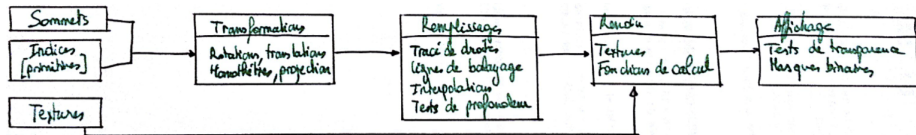 Sommets
Indices
[primitives]
Textures
Transformations
Rotations, translations
Homothéties, projection
Remplissages
Tracé de droites
Lignes de balayage
Interpolations
Tests de profondeur
Rendu
Textures
Fonctions de calcul
Affichage
Tests de transparence
Masques binaires